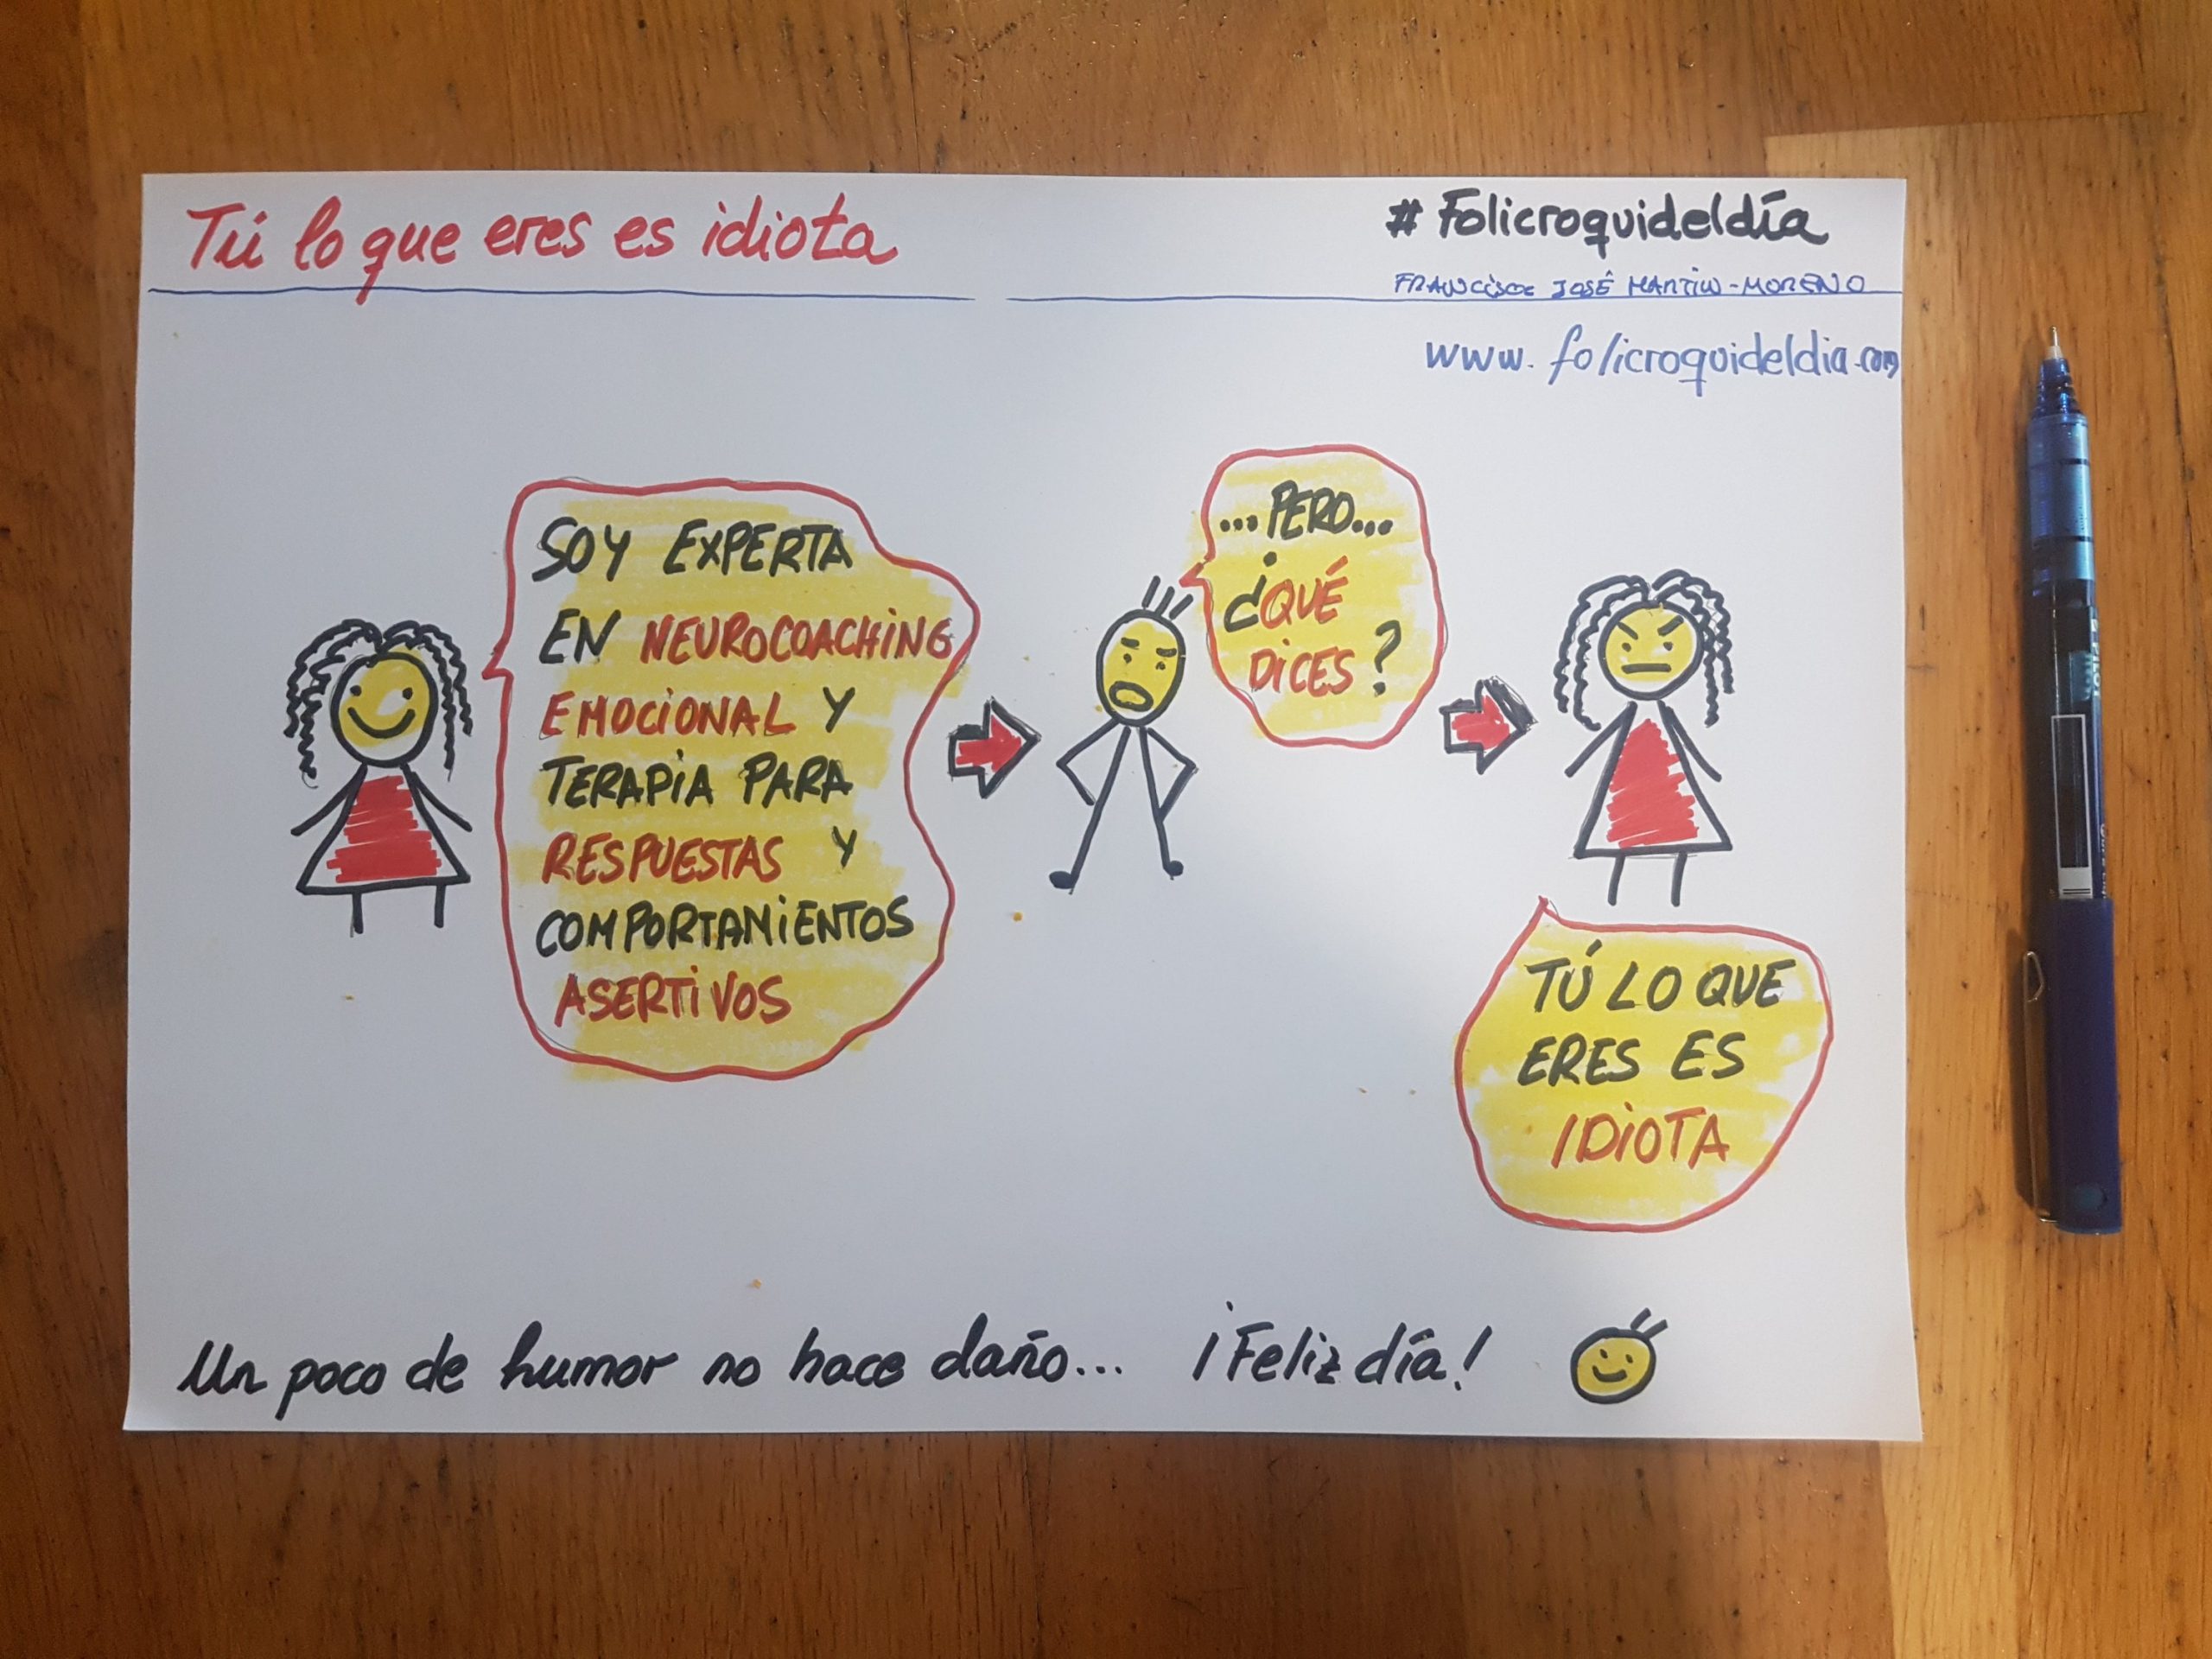 Tú lo que eres es idiota
# Folicroquideldía
FRANCISCO JOSÉ MARTIN-MORENO
www.folicroquideldia.com
SOY EXPERTA
EN NEUROCOACHING
EMOCIONAL Y
TERAPIA PARA
RESPUESTAS Y
COMPORTAMIENTOS
ASERTIVOS
...PERO...
¿QUÉ
DICES?
TÚ LO QUE
ERES ES
IDIOTA
Un poco de humor no hace daño... ¡Feliz día!